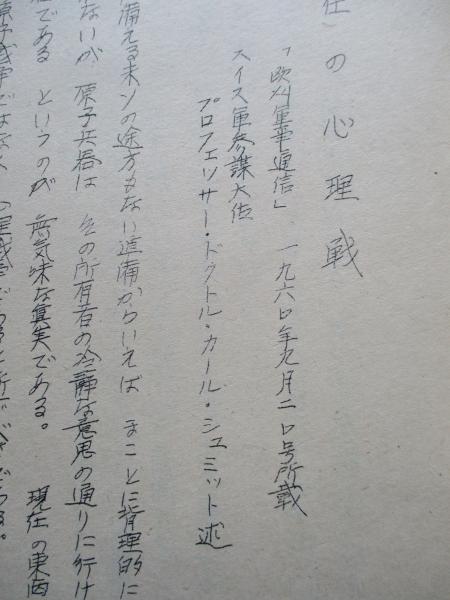 在の心理戦
「欧州軍事通信」、一九六〇年九月二〇号所載
スイス軍参謀大佐
プロフェッサー・ドクトル・カール・シュミット述
備える米ソの途方もない準備からいえば まことに背理的に
ないが 原子兵器は その所有者の冷静な意思の通りに行け
である というのが 無気味な真実である。 現在の東西